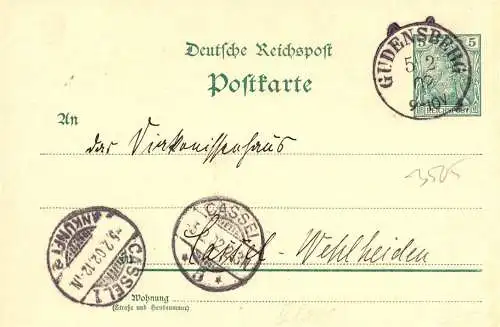 Deutsche Reichspost
5
5
GUDENSBERG
5 2
02
9-10V
Postkarte
An
das Diakonissenhaus
3505
CASSEL
Cassel-Wehlheiden
ANKUNFT
5.2.02.12-1N
CASSEL 1
Wohnung
(Straße und Hausnummer)